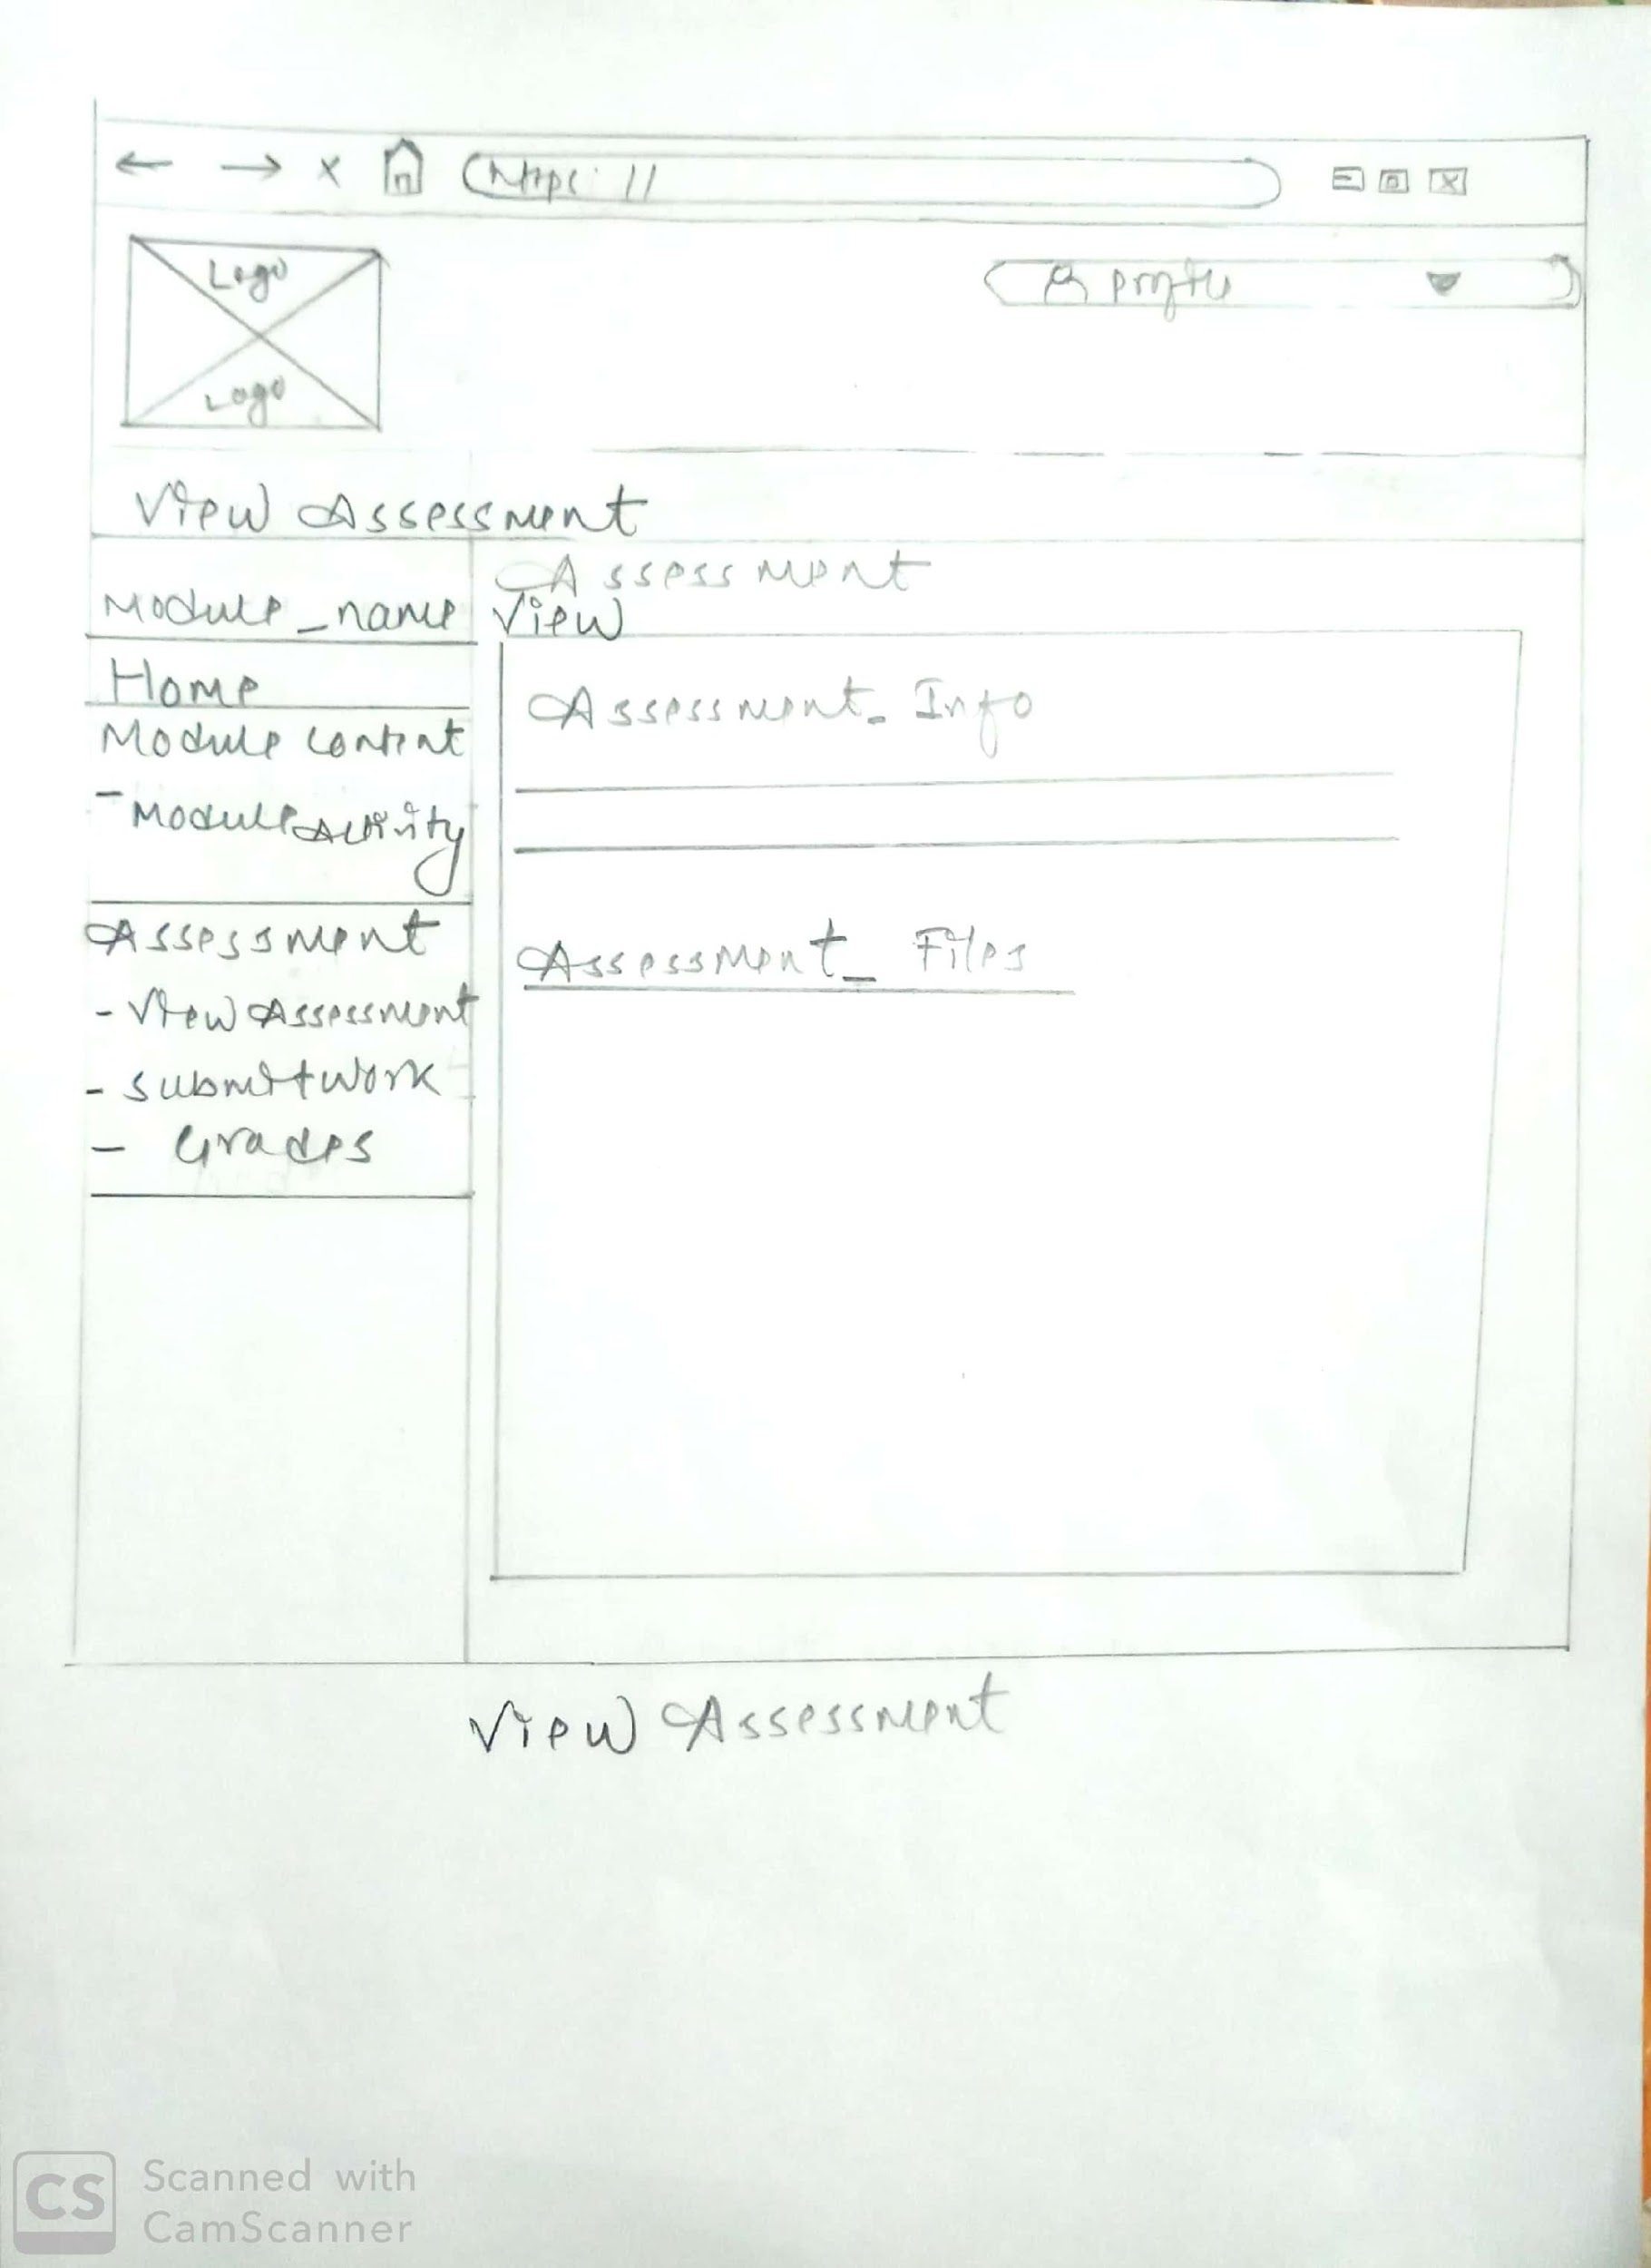 https://
Logo
Profile
Logo
View Assessment
Assessment
View
Module_name
Home
Module content
- Module Activity
Assessment
- View Assessment
- submit work
- Grades
Assessment_Info
Assessment_Files
View Assessment
CS
Scanned with
CamScanner